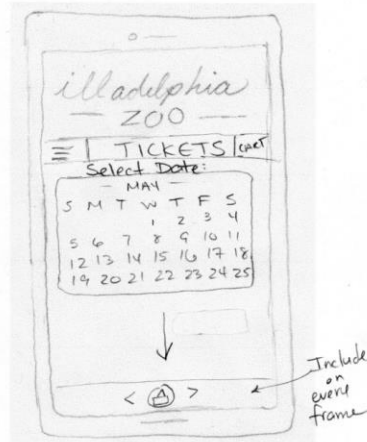 illadelphia
— ZOO —
TICKETS CART
Select Date:
— MAY —
S M T W T F S
1 2 3 4
5 6 7 8 9 10 11
12 13 14 15 16 17 18
19 20 21 22 23 24 25
< >
Include
on
every
frame